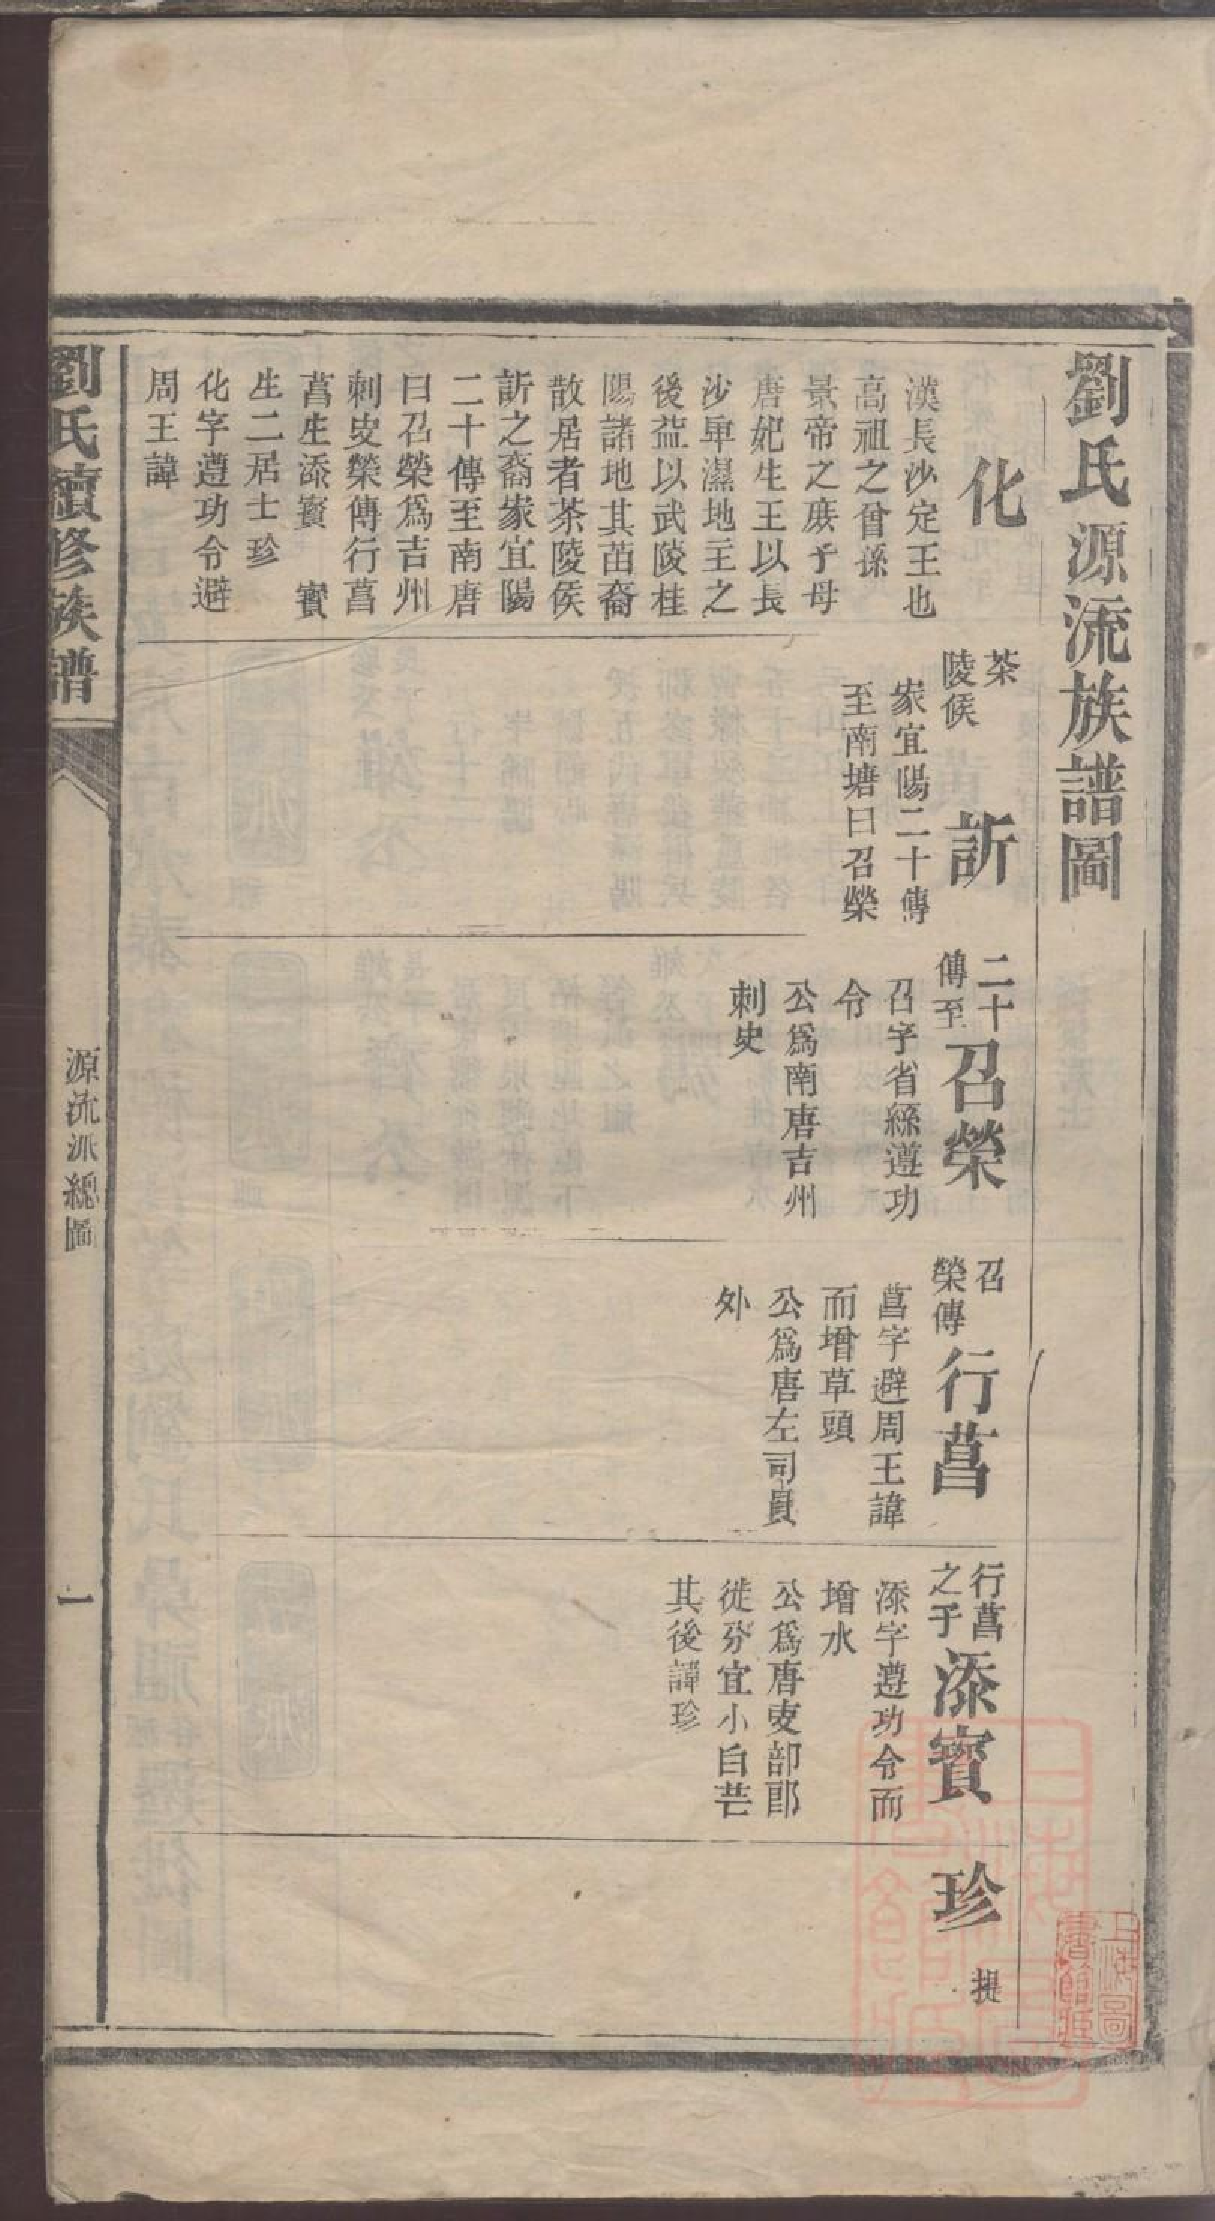 劉氏源流族譜圖
化
漢長沙定王也
高祖之曾孫
景帝之庻子母
唐妃生王以長
沙卑濕地王之
後益以武陵桂
陽諸地其苗裔
散居者茶陵侯
訢之裔家宜陽
二十傳至南唐
曰召榮爲吉州
刺史榮傳行菖
菖生添賓 賓
生二居士珍
化字遵功令避
周王諱
茶
陵侯
訢
家宜陽二十傳
至南塘曰召榮
二十
傳至
召榮
召字省絲遵功
令
公爲南唐吉州
刺史
召
榮傳
行菖
菖字避周王諱
而增草頭
公爲唐左司員
外
行菖
之子
添賓
添字遵功令而
增水
公爲唐吏部郎
徙分宜小白芒
其後諱珍
珍
提
劉氏續修族譜
源流派總圖
一
上海圖
書館藏
上海圖
書館藏